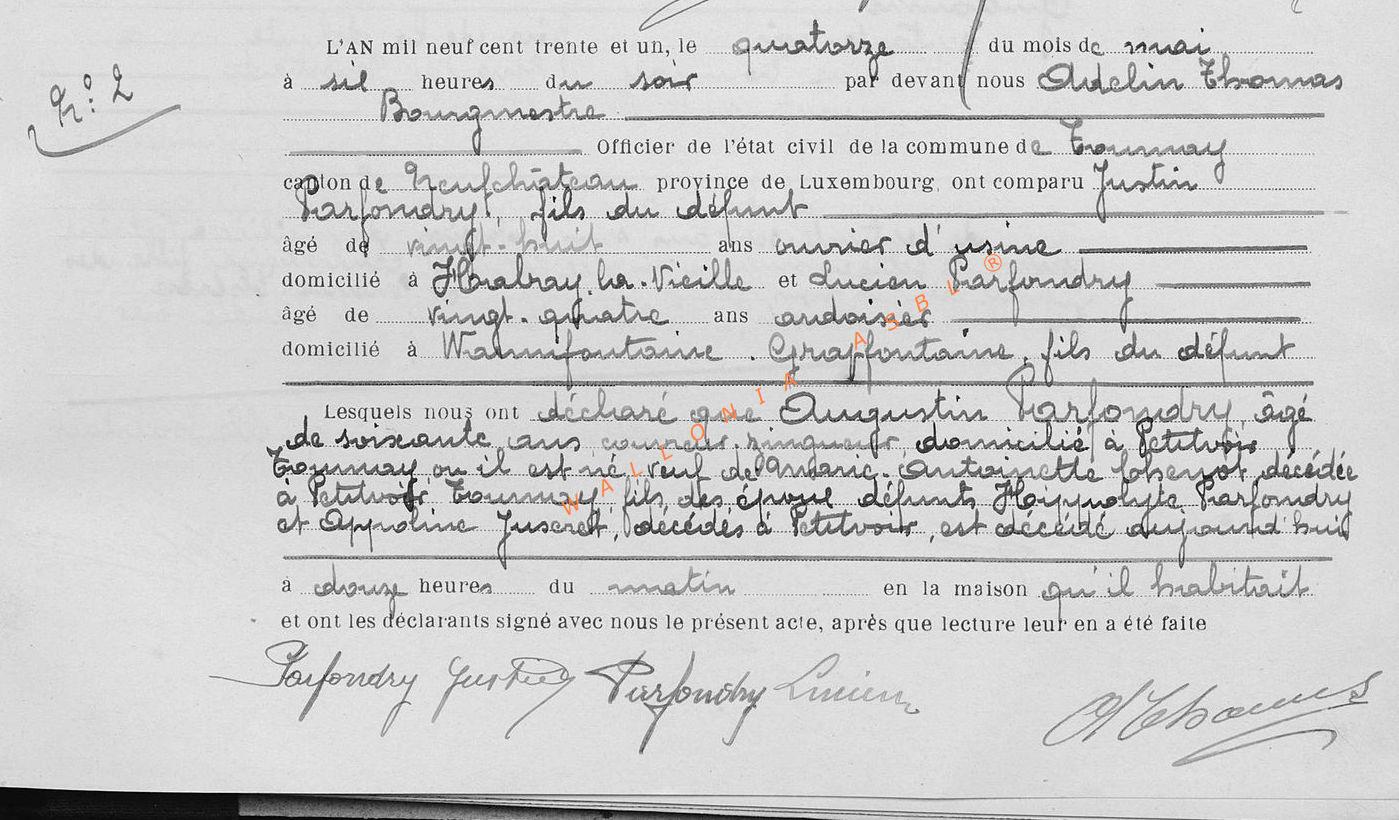 L'AN mil neuf cent trente et un, le quatorze du mois de mai
N° 2
à six heures du soir par devant nous Adelin Thomas
Bourgmestre
Officier de l'état civil de la commune de Tournay
canton de Neufchâteau province de Luxembourg, ont comparu Justin
Parfondry, fils du défunt
âgé de vingt-huit ans ouvrier d'usine
domicilié à Habay-la-Vieille et Lucien Parfondry
âgé de vingt-quatre ans ardoisier
domicilié à Warmifontaine - Grapfontaine, fils du défunt
Lesquels nous ont déclaré que Augustin Parfondry, âgé
de soixante ans couvreur-zingueur, domicilié à Petitvoir
Tournay où il est né, veuf de Marie-Antoinette décédée
à Petitvoir Tournay, fils des époux défunts Hippolyte Parfondry
et Appoline Juseret, décédés à Petitvoir, est décédé aujourd'hui
à douze heures du matin en la maison qu'il habitait
et ont les déclarants signé avec nous le présent acte, après que lecture leur en a été faite
Parfondry Justin Parfondry Lucien AThomas
WALLONIA ASBL ®